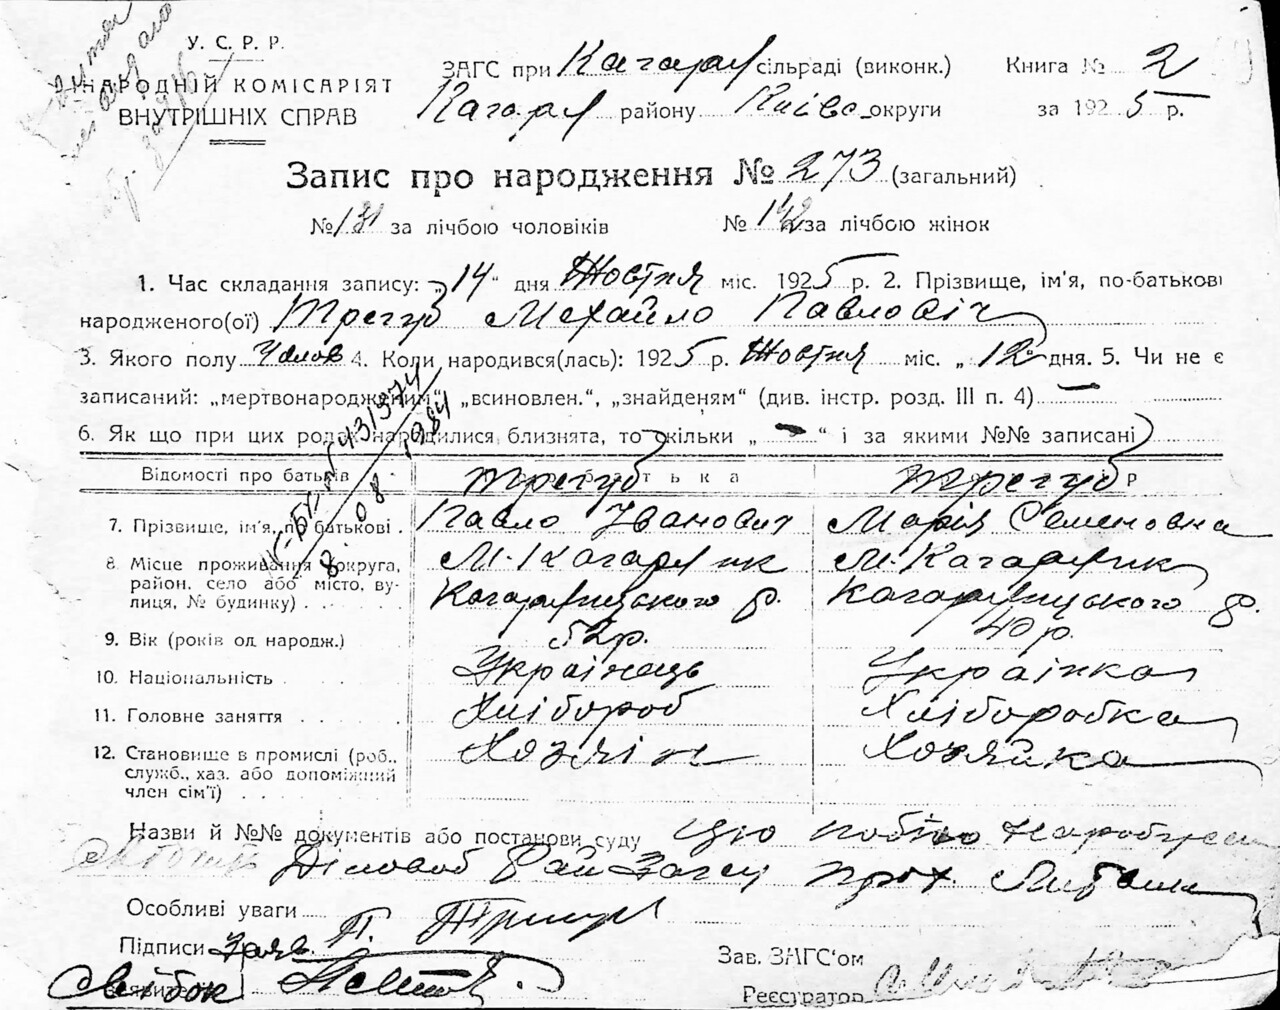 У. С. Р. Р.
НАРОДНІЙ КОМІСАРІЯТ
ВНУТРІШНІХ СПРАВ
ЗАГС при Кагарл сільраді (виконк.)
Кагарл району Київс округи
Книга № 2
за 1925 р.
Запис про народження № 273 (загальний)
№ 131 за лічбою чоловіків № 142 за лічбою жінок
1. Час складання запису: „14“ дня Жовтня міс. 1925 р. 2. Прізвище, ім'я, по-батькові
народженого(ої) Трегуб Михайло Павловіч
3. Якого полу Чолов 4. Коли народився(лась): 1925 р. Жовтня міс. „12“ дня. 5. Чи не є
записаний: „мертвонародженим“, „всиновлен.“, „знайденям“ (див. інстр. розд. III п. 4) —
6. Як що при цих родах народилися близнята, то скільки „ — “ і за якими №№ записані
Відомості про батьків Трегуб Трегуб
7. Прізвище, ім'я, по батькові . Павло Іванович Марія Семеновна
8. Місце проживання (округа, М. Кагарлик М. Кагарлик
район, село або місто, ву-
лиця, № будинку) . . . Кагарлицького р. Кагарлицького р.
9. Вік (років од народж.) 52 р. 40 р.
10. Національність . Українець Українка
11. Головне заняття . . . . . Хлібороб Хліборобка
12. Становище в промислі (роб., Хозяїн Хозяйка
служб., хаз. або допоміжний
член сім'ї) . . . . . . . .
Назви й №№ документів або постанови суду
Діловод Рай Загсу
Особливі уваги
Підписи Заяв. П.
Зав. ЗАГС'ом
Реєстратор